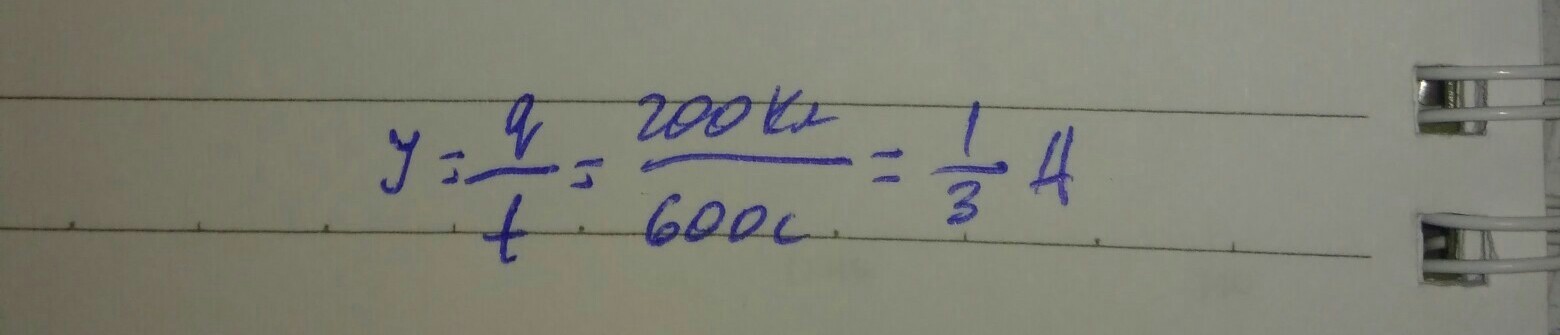 У = q/t = 200 Кл/600 с = 1/3 А